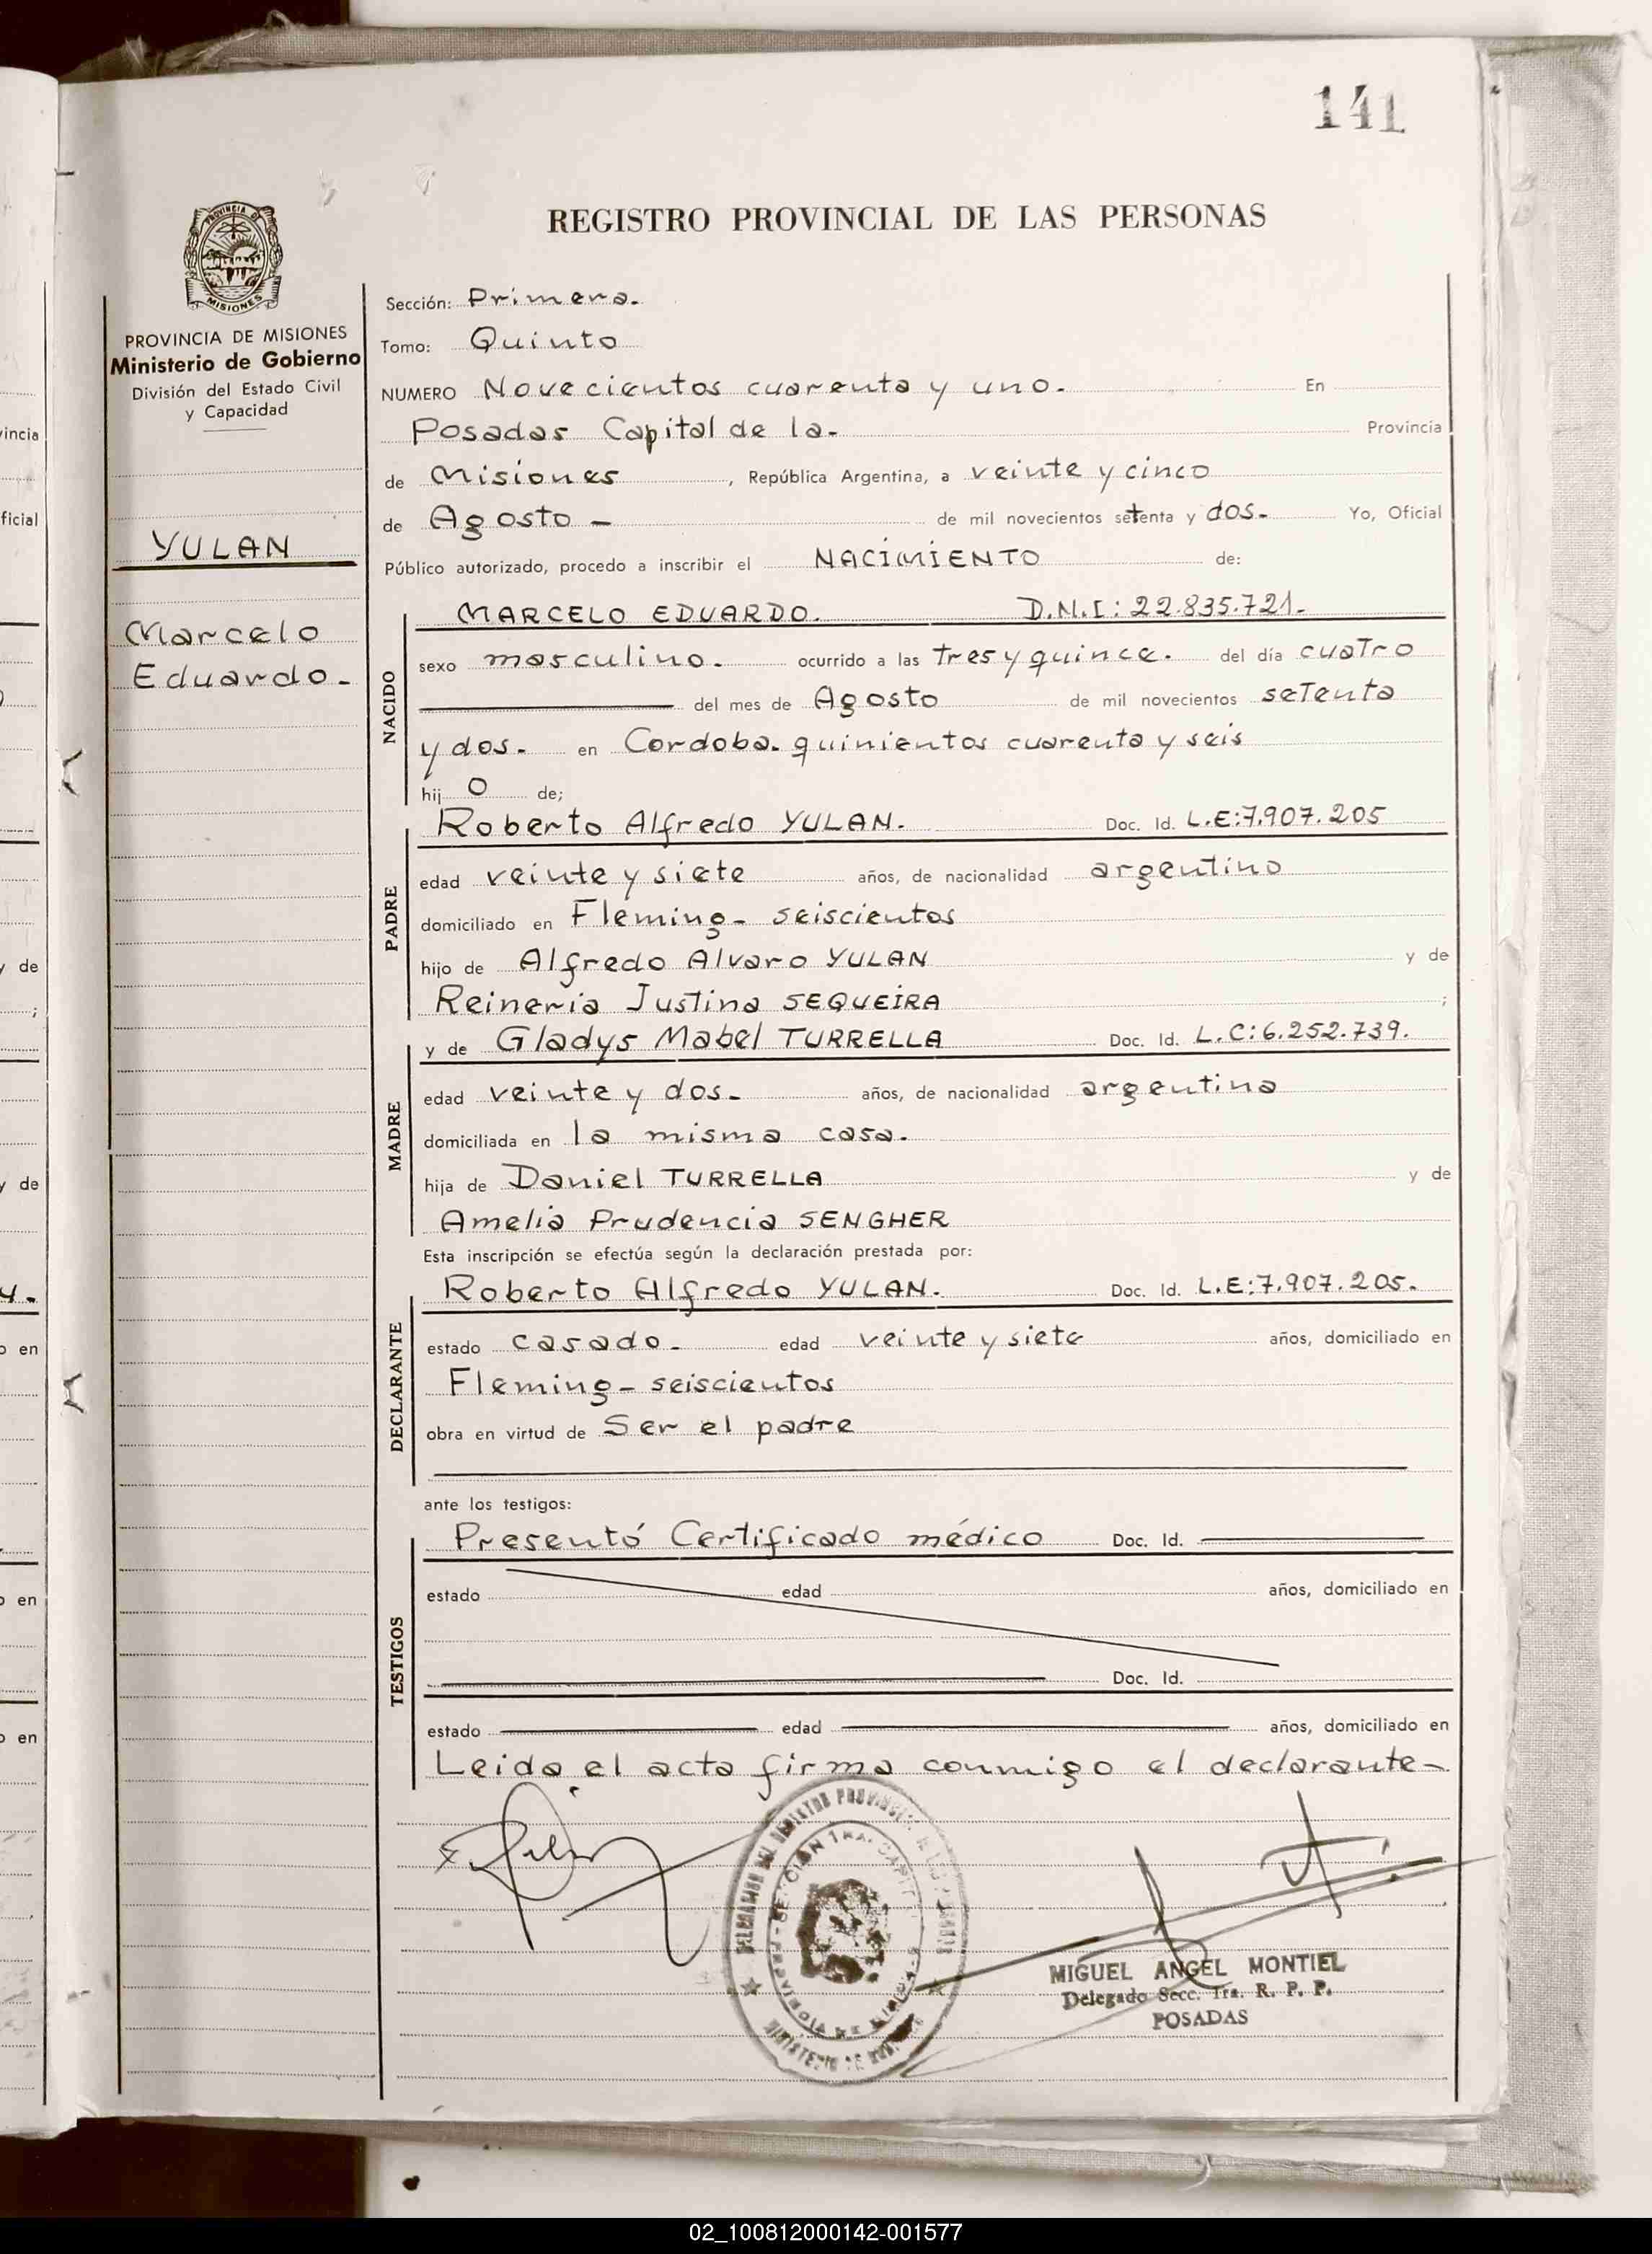 141
REGISTRO PROVINCIAL DE LAS PERSONAS
PROVINCIA DE MISIONES
Ministerio de Gobierno
División del Estado Civil
y Capacidad
YULAN
Marcelo
Eduardo.-
Sección: Primera.
Tomo: Quinto
NUMERO Novecientos cuarenta y uno. En
Posadas Capital de la- Provincia
de Misiones, República Argentina, a veinte y cinco
de Agosto - de mil novecientos setenta y dos.- Yo, Oficial
Público autorizado, procedo a inscribir el NACIMIENTO de:
MARCELO EDUARDO. D.N.I: 22.835.721.-
NACIDO
sexo masculino. ocurrido a las tres y quince. del día cuatro
del mes de Agosto de mil novecientos setenta
y dos.- en Cordoba. quinientos cuarenta y seis
hij o de;
PADRE
Roberto Alfredo YULAN. Doc. Id. L.E:7.907.205
edad veinte y siete años, de nacionalidad argentino
domiciliado en Fleming- seiscientos
hijo de Alfredo Alvaro YULAN y de
Reineria Justina SEQUEIRA ;
MADRE
y de Gladys Mabel TURRELLA Doc. Id. L.C:6.252.739.
edad veinte y dos.- años, de nacionalidad argentina
domiciliada en la misma casa.
hija de Daniel TURRELLA y de
Amelia Prudencia SENGHER
Esta inscripción se efectúa según la declaración prestada por:
DECLARANTE
Roberto Alfredo YULAN. Doc. Id. L.E:7.907.205.
estado casado.- edad veinte y siete años, domiciliado en
Fleming- seiscientos
obra en virtud de Ser el padre
ante los testigos:
TESTIGOS
Presentó Certificado médico Doc. Id.
estado edad años, domiciliado en
Doc. Id.
estado edad años, domiciliado en
Leida el acta firma conmigo el declarante-
MIGUEL ANGEL MONTIEL
Delegado Secc. 1ra. R. P. P.
POSADAS
02_100812000142-001577